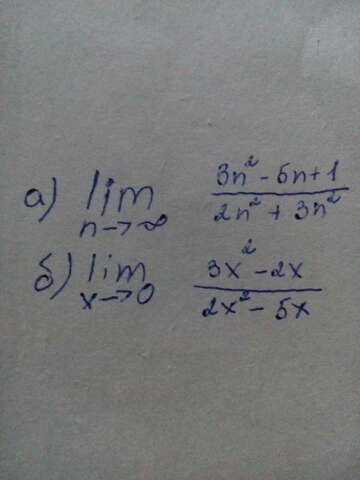 а) lim n→∞ (3n² - 5n + 1)/(2n² + 3n²)
б) lim x→0 (3x² - 2x)/(2x² - 5x)